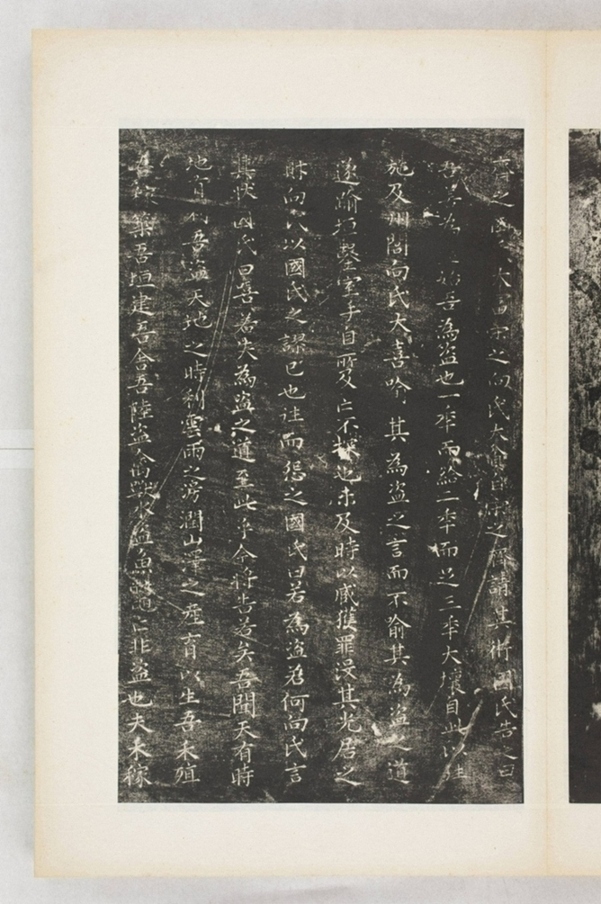 齊之國氏大富宋之向氏大貧自宋之齊請其術國氏告之曰
吾善為盜始吾為盜也一年而給二年而足三年大壤自此以往
施及州閭向氏大喜喻其為盜之言而不喻其為盜之道
遂踰垣鑿室手目所及亡不探也未及時以贓獲罪沒其先居之
財向氏以國氏之謬己也往而怨之國氏曰若為盜若何向氏言
其狀國氏曰嘻若失為盜之道至此乎今將告若矣吾聞天有時
地有利吾盜天地之時利雲雨之滂潤山澤之產育以生吾禾殖
吾稼築吾垣建吾舍吾陸盜禽獸水盜魚鱉亡非盜也夫禾稼